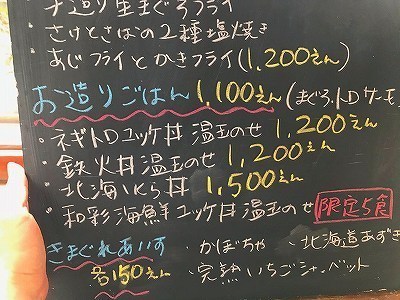 手造り生まぐろフライ
さけとさばの2種塩焼き
あじフライとかきフライ(1,200えん)
お造りごはん 1,100えん(まぐろ、トロサーモ
・ネギトロユッケ丼 温玉のせ 1,200えん
・鉄火丼温玉のせ 1,200えん
・北海いくら丼 1,500えん
・和彩海鮮ユッケ丼温玉のせ 限定5食
きまぐれあいす ・かぼちゃ ・北海道あずき
各150えん ・完熟いちごシャーベット